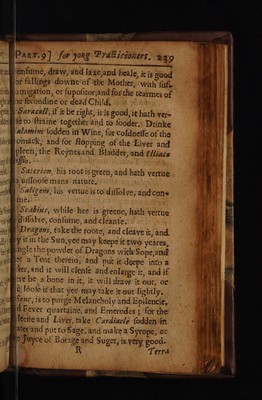 PART.9] for yong Practicioners. 239
onsume, draw, and laxe, and heale, it is good
or fallings downe of the Mother, with suf-
umigation, or supositor, and for the tearmes of
he secondine or dead Child.
Saracell, if it be right, it is good, it hath ver-
e to straine together and to souder. Drinke
alamint sodden in Wine, for coldnesse of the
omack, and for stopping of the Liver and
pleen, the Reynes and Bladder, and Illiaca
ssio.
his root is green, and hath vertue
unloose mans nature.
his vertue is to dissolve, and con-
me.
Scabius, while hee is greene, hath vertue
dissolve, consume, and cleanse.
Dragons, take the roote, and cleave it, and
y it in the Sun, yee may keepe it two yeares,
ingle the powder of Dragons with Sope, and
et a Tent therein, and put it deepe into a
ler, and it will clense and enlarge it, and if
ere be a bone in it, it will draw it out, or
e, loose it that yee may take it out lightly.
is to purge Melancholy and Epilencie,
d Fever quartaine, and Emerodes; for the
leene and Liver, take sodden in
ater and put to Sage, and make a Syrope, or
Juyce of Borage and Suger, is very good.
R Terra